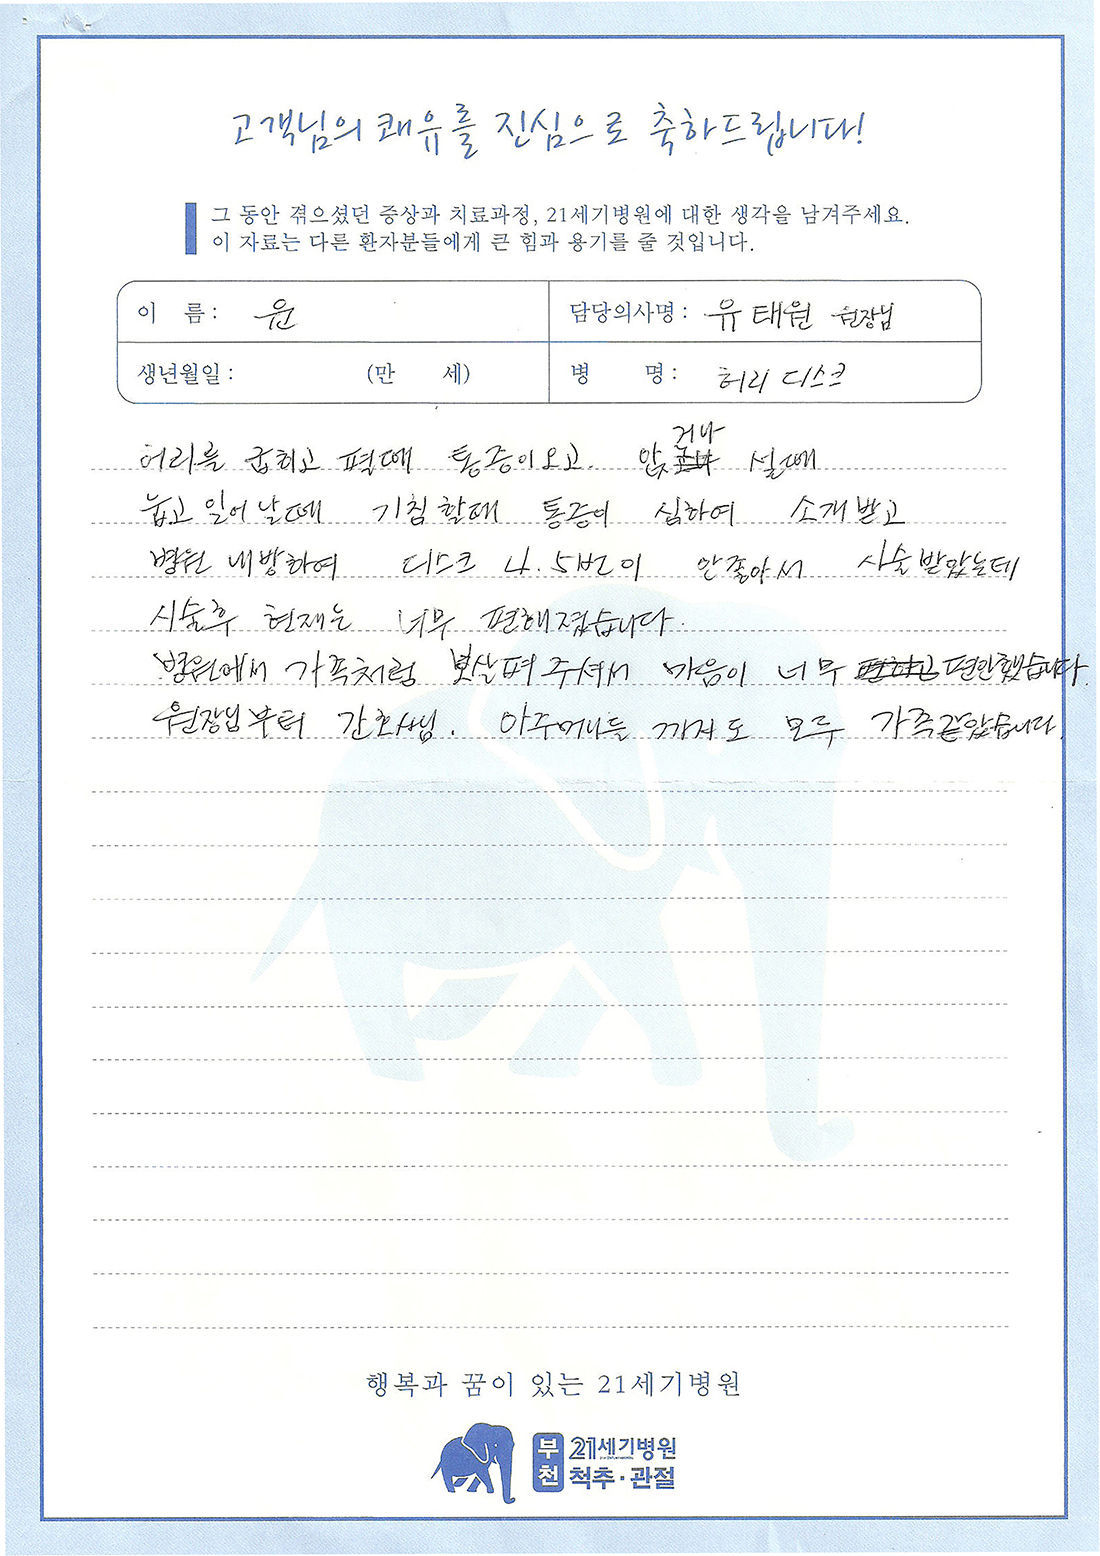 고객님의 쾌유를 진심으로 축하드립니다!
그 동안 겪으셨던 증상과 치료과정, 21세기병원에 대한 생각을 남겨주세요.
이 자료는 다른 환자분들에게 큰 힘과 용기를 줄 것입니다.
이 름 : 윤 담당의사명 : 유태원 원장님
생년월일 : (만 세) 병 명 : 허리 디스크
허리를 굽히고 펼때 통증이오고. 앉거나 설때
눕고 일어날때 기침할때 통증이 심하여 소개받고
병원 내방하여 디스크 4.5번이 안좋아서 시술받았는데
시술후 현재는 너무 편해졌습니다.
병원에서 가족처럼 보살펴주셔서 마음이 너무 편안했습니다.
원장님부터 간호사님. 아주머니들 까지도 모두 가족같았습니다.
행복과 꿈이 있는 21세기병원
부천 21세기병원
척추·관절